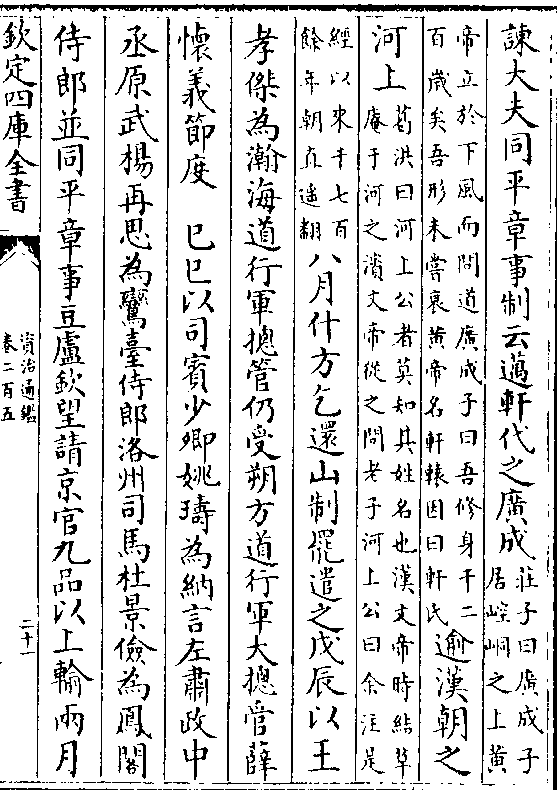 諫大夫同平章事制云邁軒代之廣成莊子曰廣成子居崆峒之上黃
帝立於下風而問道廣成子曰吾修身千二百歲矣吾形未嘗衰黃帝名軒轅因曰軒氏逾漢朝之
河上葛洪曰河上公者莫知其姓名也漢文帝時結草庵于河之濱文帝從之問老子河上公曰余注是
經以來千七百餘年朝直遙翻八月什方乞還山制罷遣之戊辰以王
孝傑為瀚海道行軍總管仍受朔方道行軍大總管薛
懷義節度 己巳以司賓少卿姚璹為納言左肅政中
丞原武楊再思為鸞臺侍郎洛州司馬杜景儉為鳳閣
侍郎並同平章事豆盧欽望請京官九品以上輸兩月
欽定四庫全書
資治通鑑
卷二百五
二十一